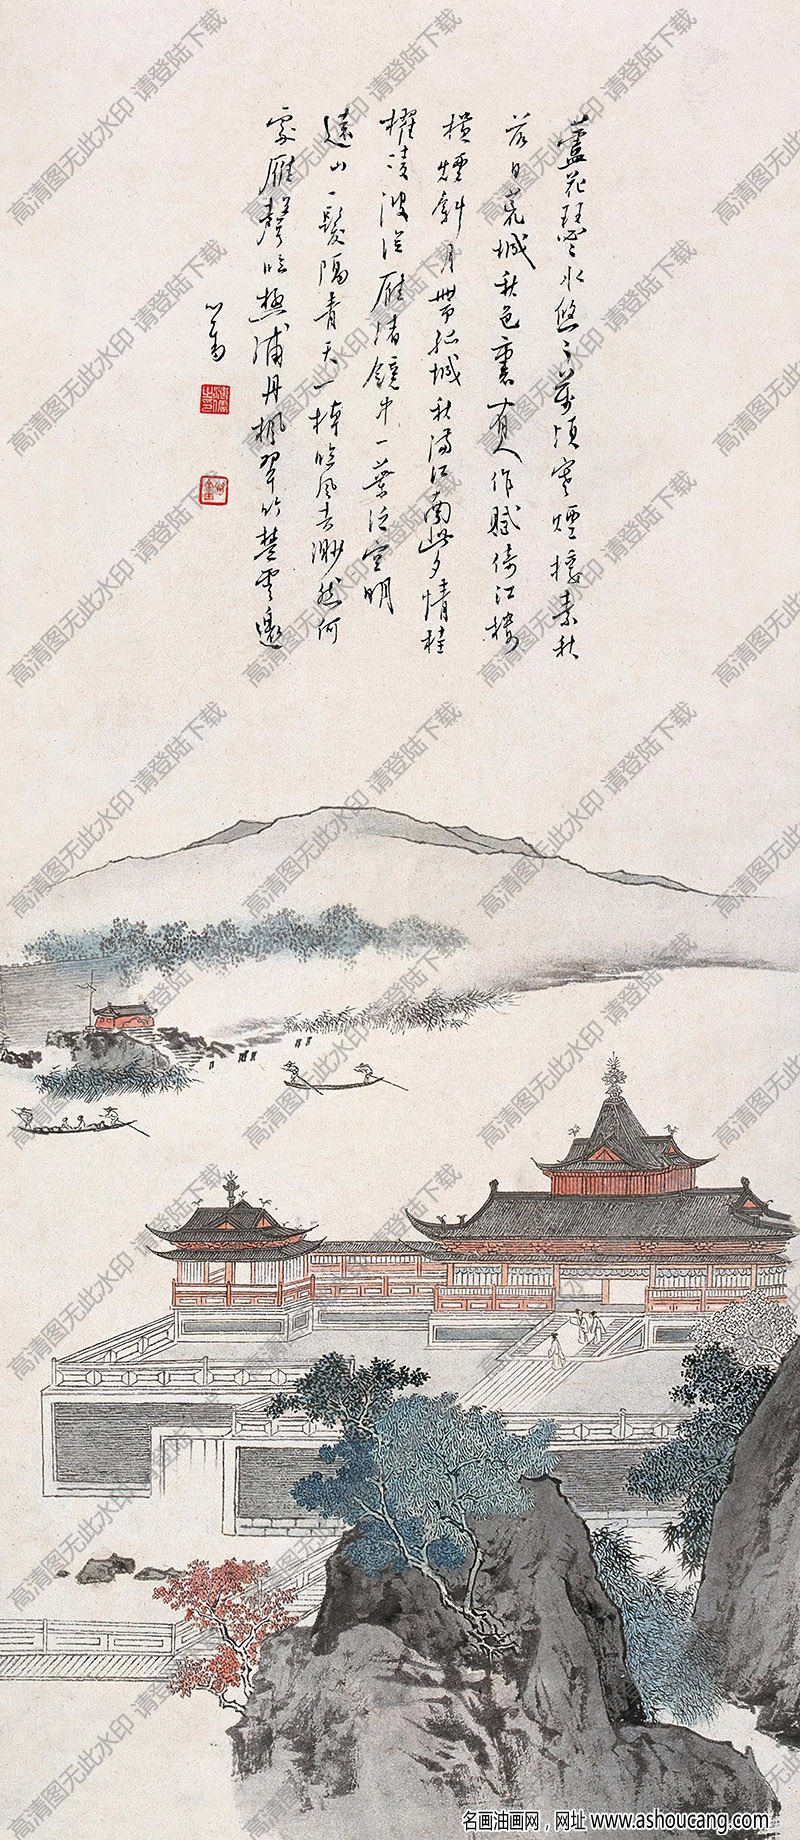 蘆花瑟〻水悠〻萬頃寒煙接素秋
落日荒城秋色裏有人作賦倚江樓
橫煙斜月帶孤城秋滿江南此夕情桂
櫂凌波從雁渚鏡中一葉泛空明
遠山一髮隔青天一棹臨風去渺然何
處雁聲臨極浦丹楓翠竹楚雲邊
心畬
高清图无此水印 请登陆下载
名画油画网，网址 www.ashoucang.com